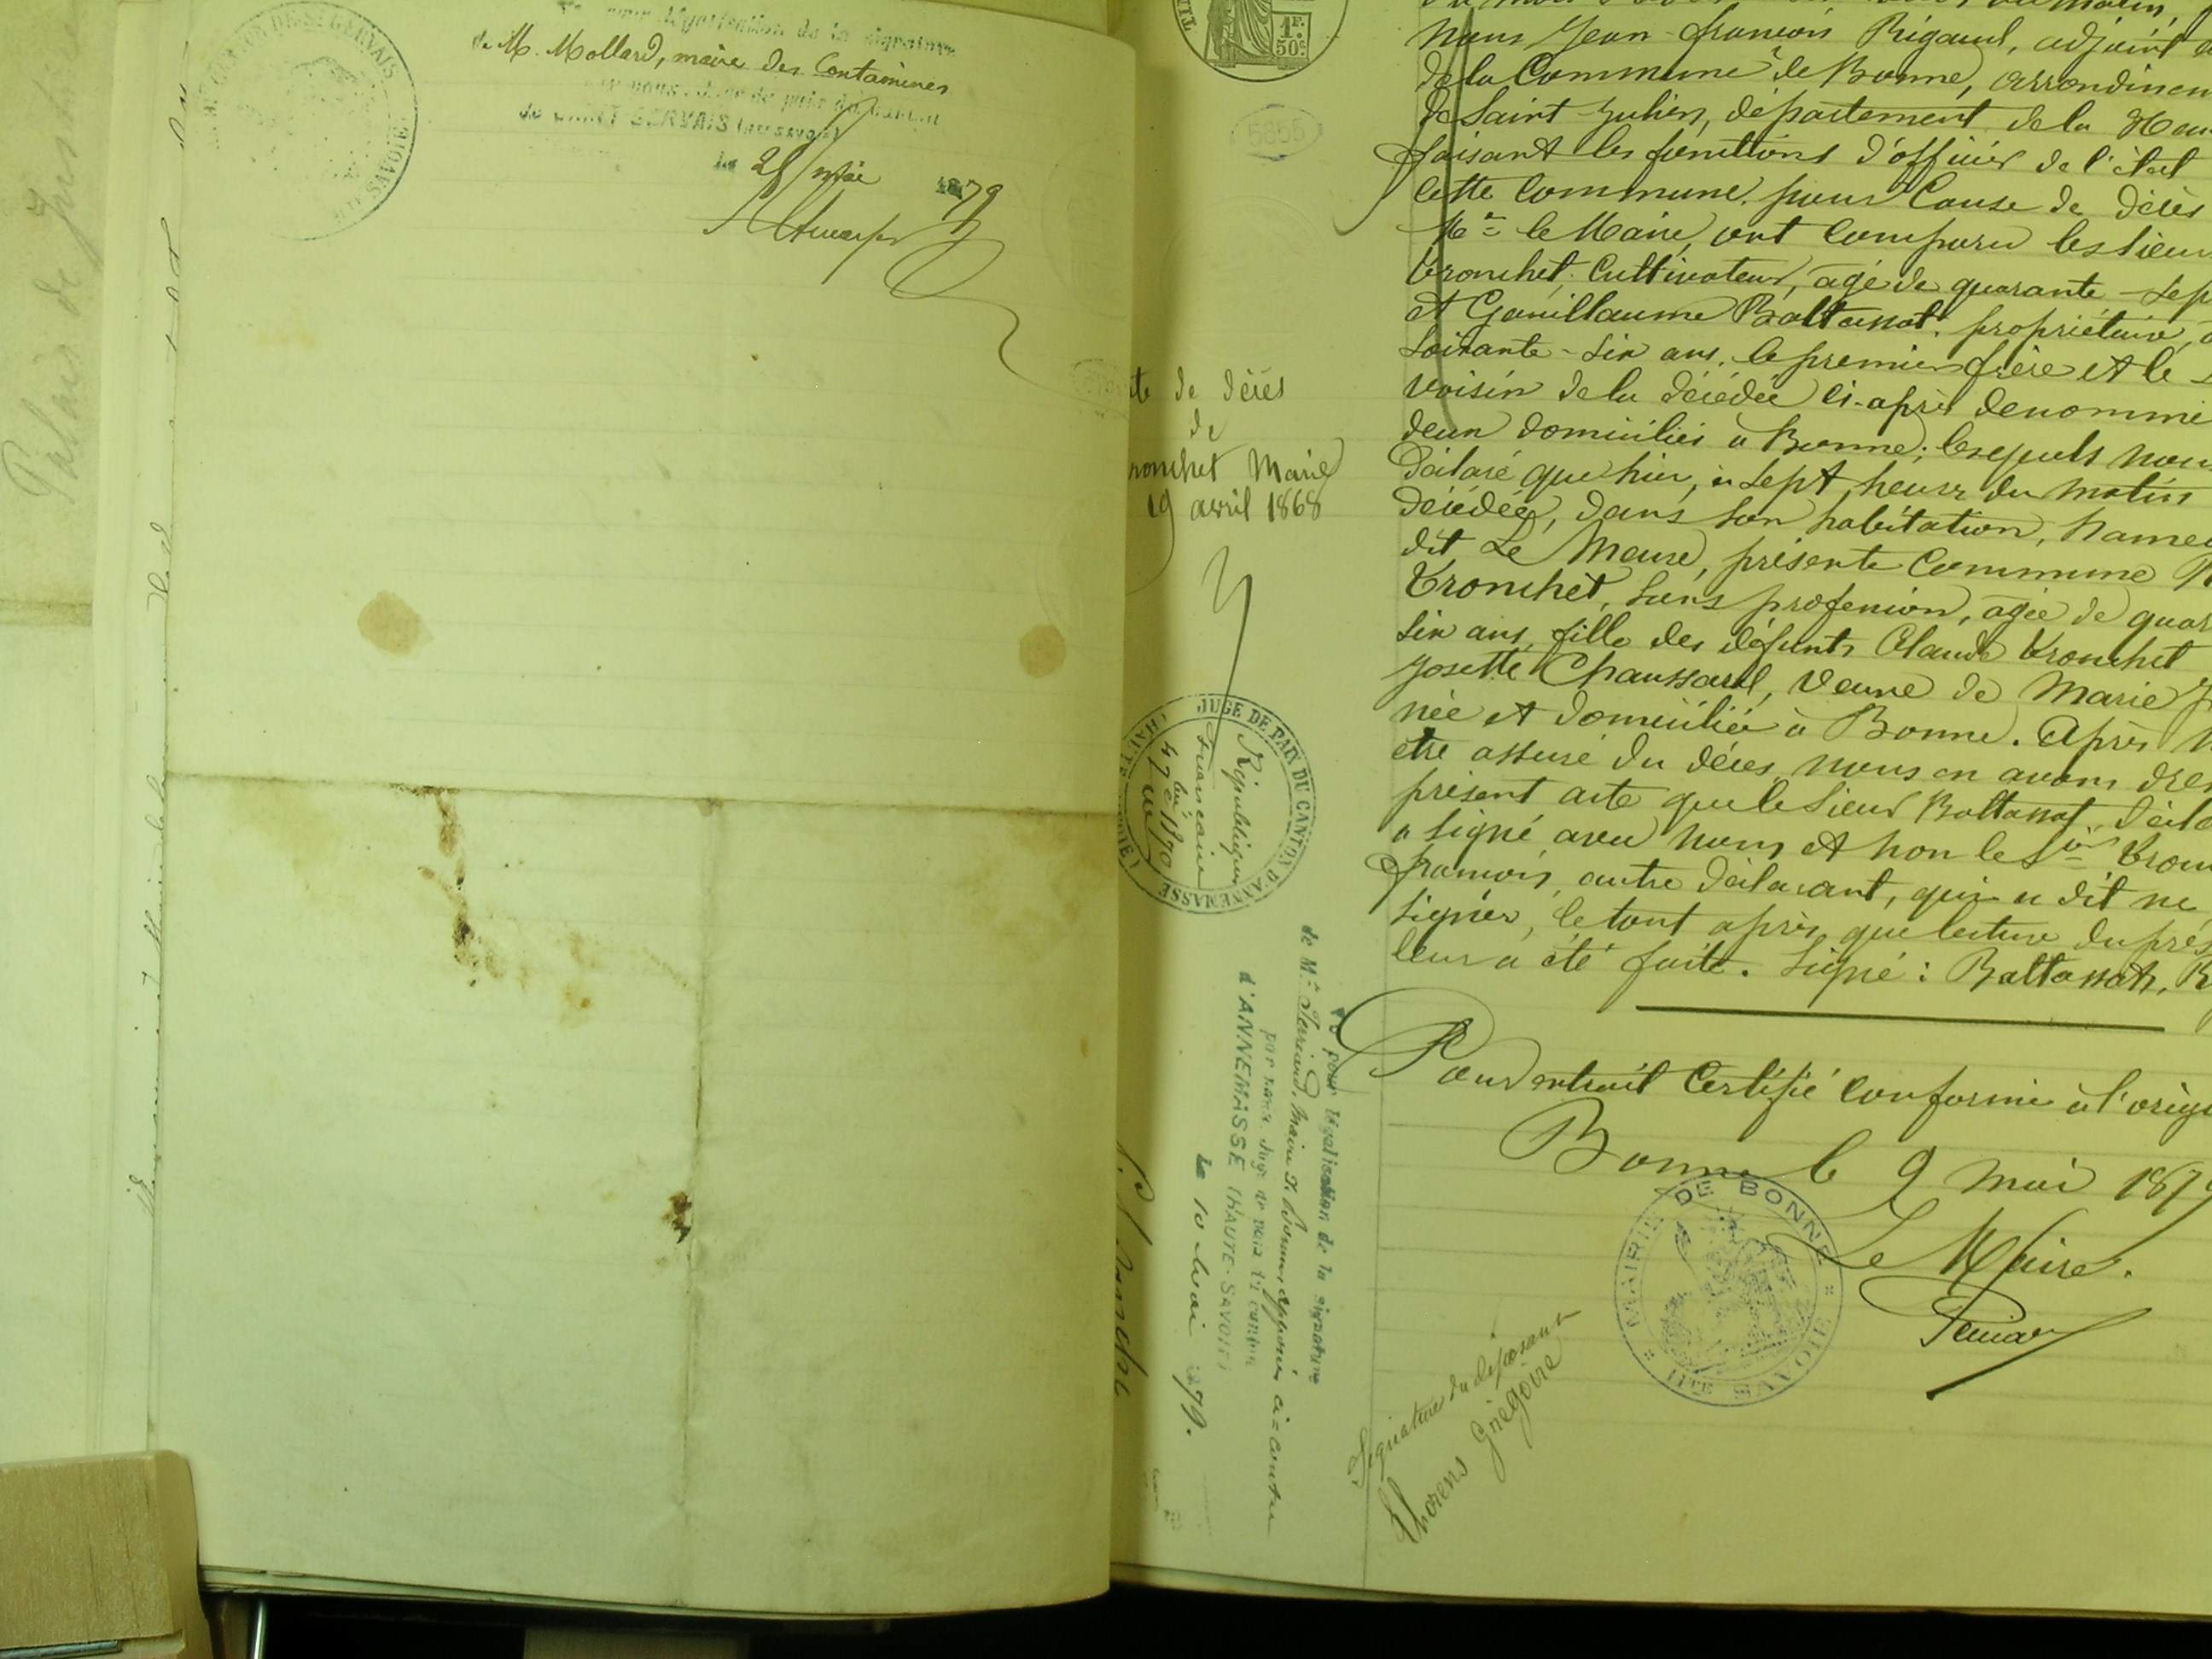 Vu pour légalisation de la signature
de M. Mollard, maire des Contamines
par nous, juge de paix du canton
de SAINT GERVAIS (Hte Savoie)
le 28 mai 1879
CANTON DE ST GERVAIS
HTE SAVOIE
Palais de Jus
1F.
50c
5355
te de décès
de
ronchet Marie
19 avril 1868
JUGE DE PAIX DU CANTON D'ANNEMASSE
(HAUTE SAVOIE)
République
française
Vu pour légalisation de la signature
de Mr maire de Bonne, apposée ci-contre
par nous Juge de paix du canton
d'ANNEMASSE (HAUTE-SAVOIE)
le 10 Mai 1879.
nous Jean-françois Rigaud, adjoint a
de la Commune de Bonne, arrondissem
de Saint-Julien, département de la Hau
faisant les fonctions d'officier de l'état
cette Commune, pour Cause de décès
Mr le Maire, ont Comparu les sieurs
tronchet, Cultivateur, âgé de quarante-sep
et Gouillaume Baltassat, propriétaire, â
soixante-six ans, le premier frère et le
voisin de la décédée ci-après dénommé
deux domiciliés à Bonne; lesquels nous
déclaré que hier, à sept heures du matin
décédée, dans son habitation, hamea
dit Le Meure, présente Commune
tronchet, sans profession, âgée de quar
six ans, fille des défunts Claude tronchet
Josette Chaussard, veuve de Marie
née et domiciliée à Bonne. Après n
être assuré du décès, nous en avons dres
présent acte que le sieur Baltassat, décla
a signé avec nous et non le sr tron
françois, autre déclarant, qui a dit ne
signer, le tout après que lecture du prés
leur a été faite. Signé: Baltassat, R
Pour extrait Certifié conforme à l'origi
Bonne le 9 mai 1879
Le Maire.
MAIRIE DE BONNE
HTE SAVOIE
Signature du déposant
Thorens Grégoire